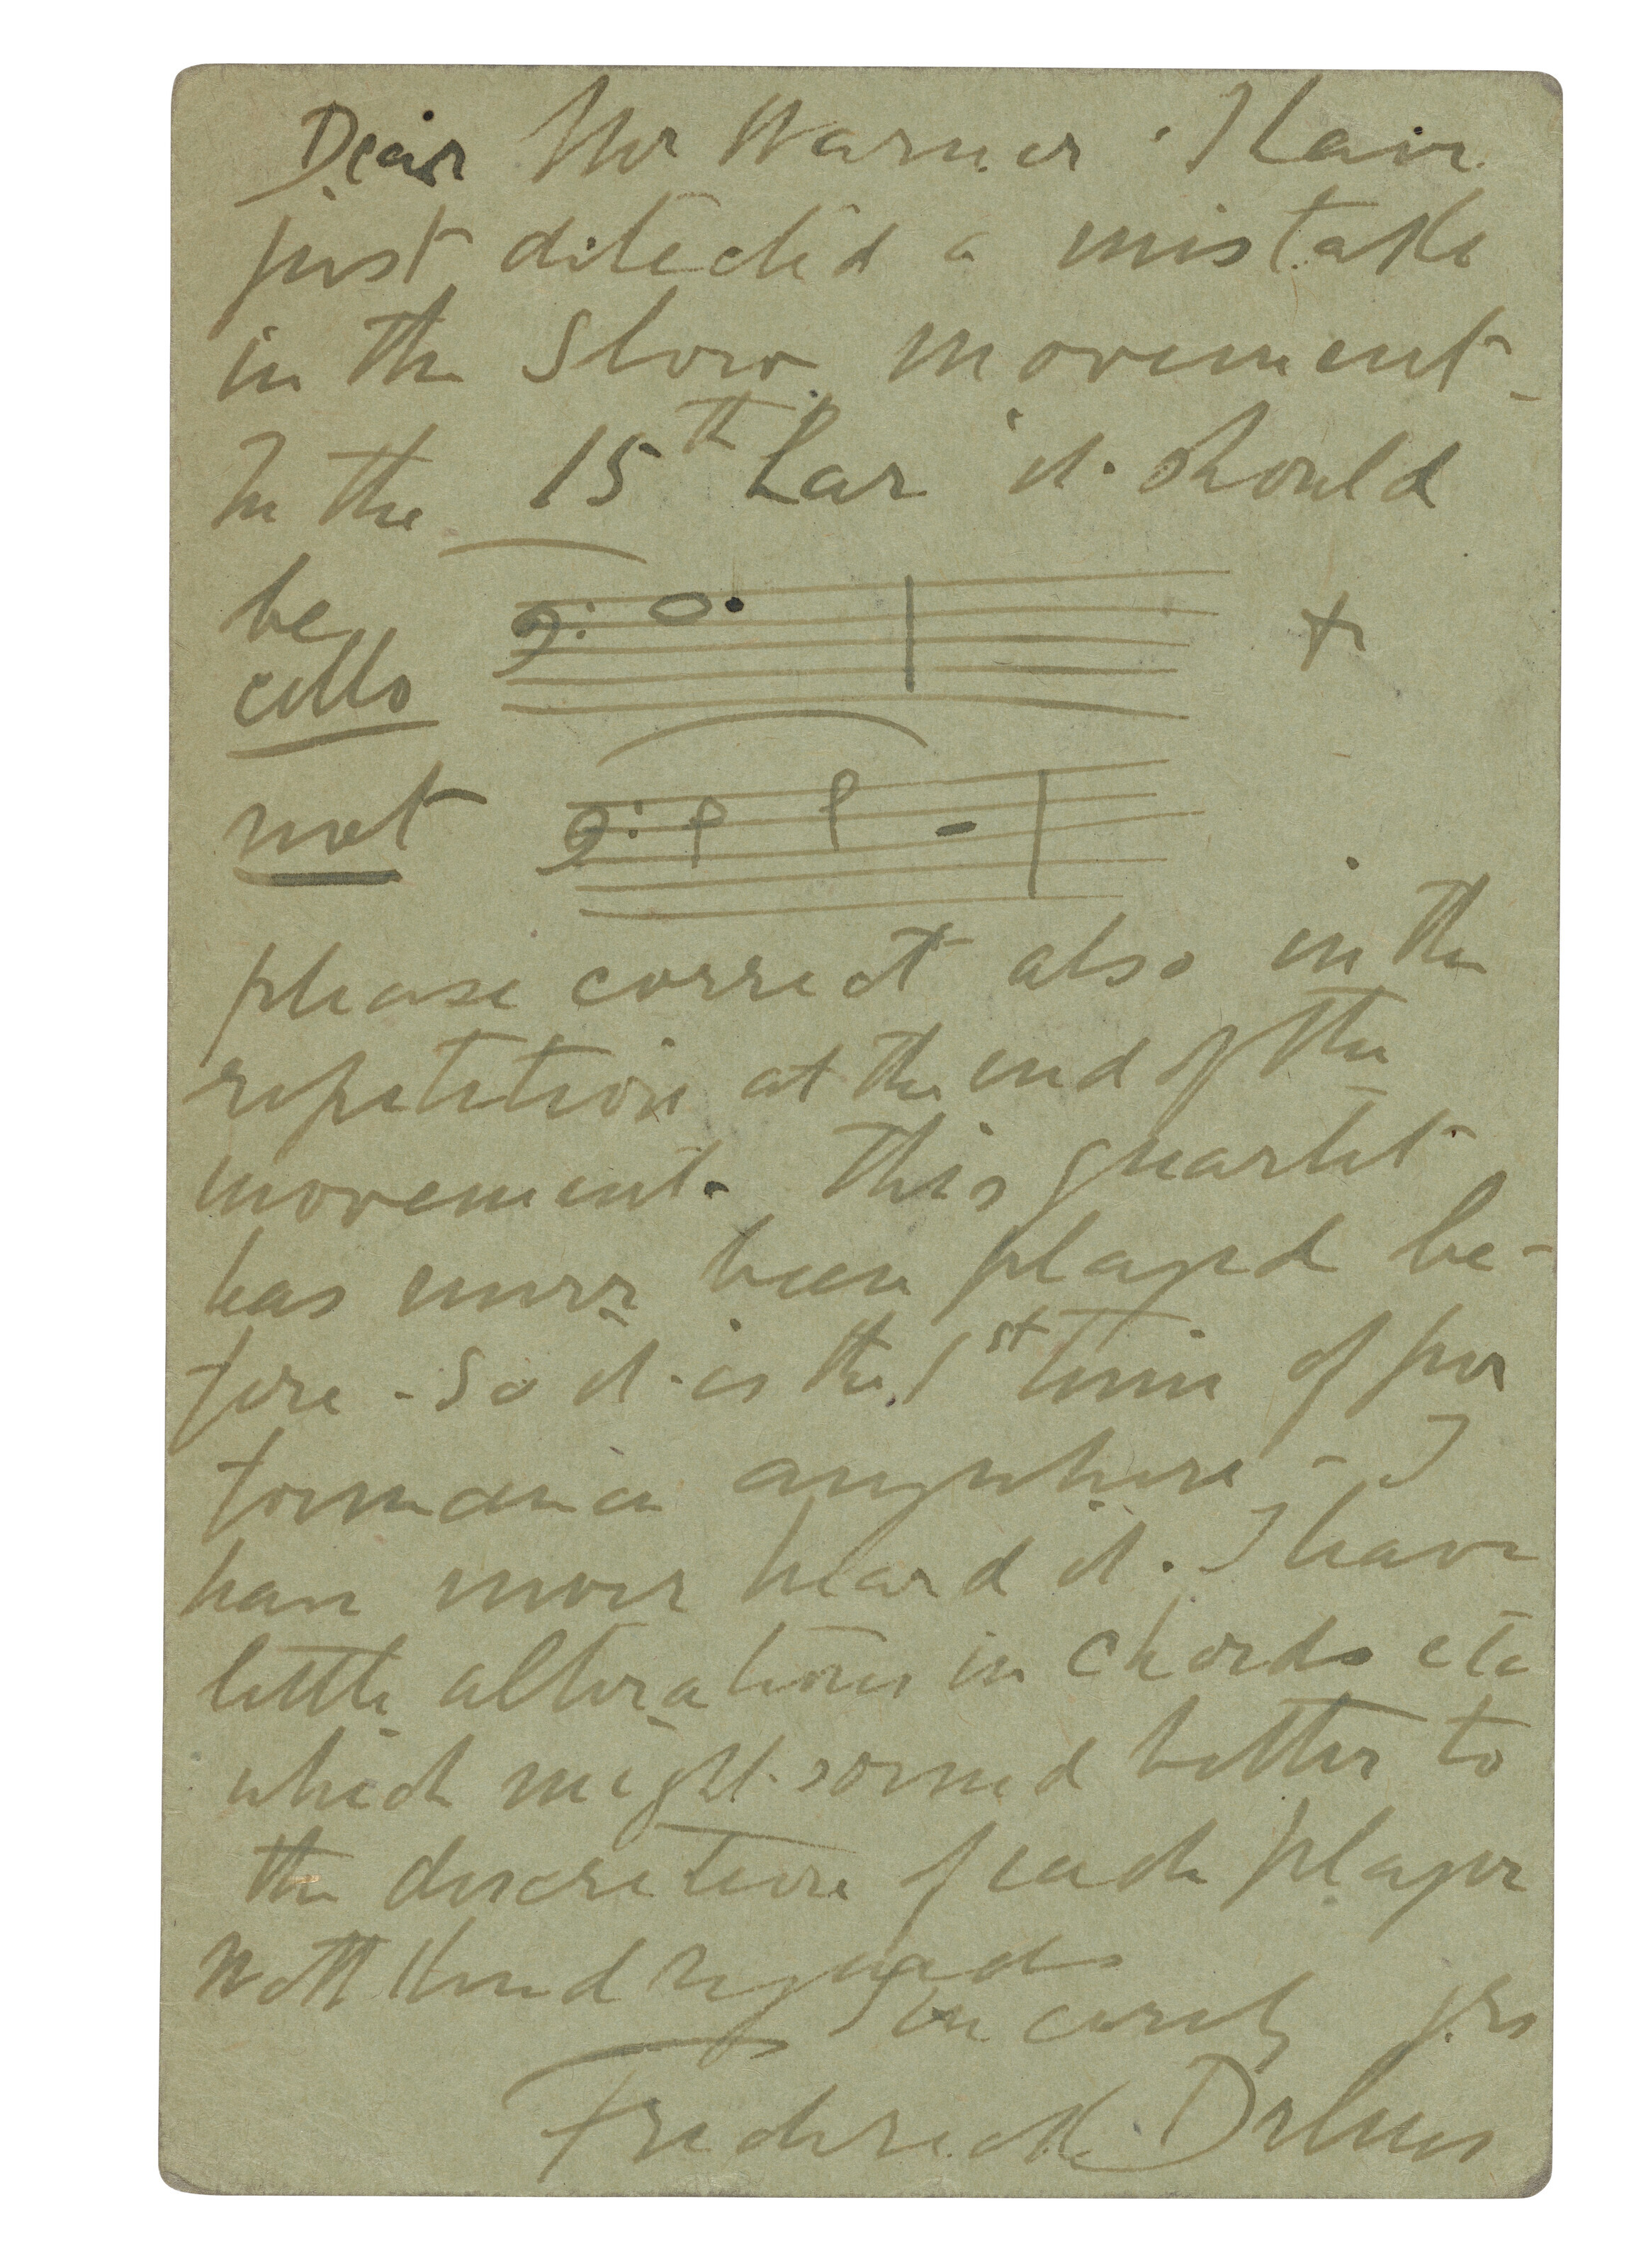 Dear Mr Warner. I have
just detected a mistake
in the Slow movement-
In the 15th bar it should
be
cello
not
please correct also in the
repetition at the end of the
movement. This quartet
has never been played be-
fore - So it is the 1st time of per
formance anywhere - I
have never heard it. I leave
little alterations in chords etc
which might sound better to
the discretion of each player
With kind regards
Sincerely yrs
Frederick Delius